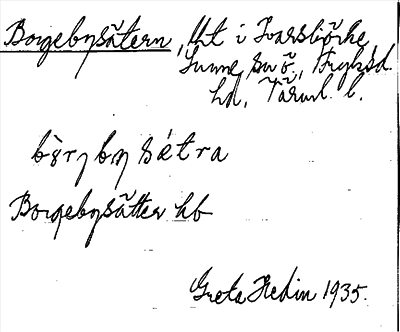 Borgebysätern, tht i Ivarsbjörke,
Sunne sn ö., Fryksd.
hd, Värml. l.
bòrjbysétra
Borgebysätter hb
Greta Hedin 1935.